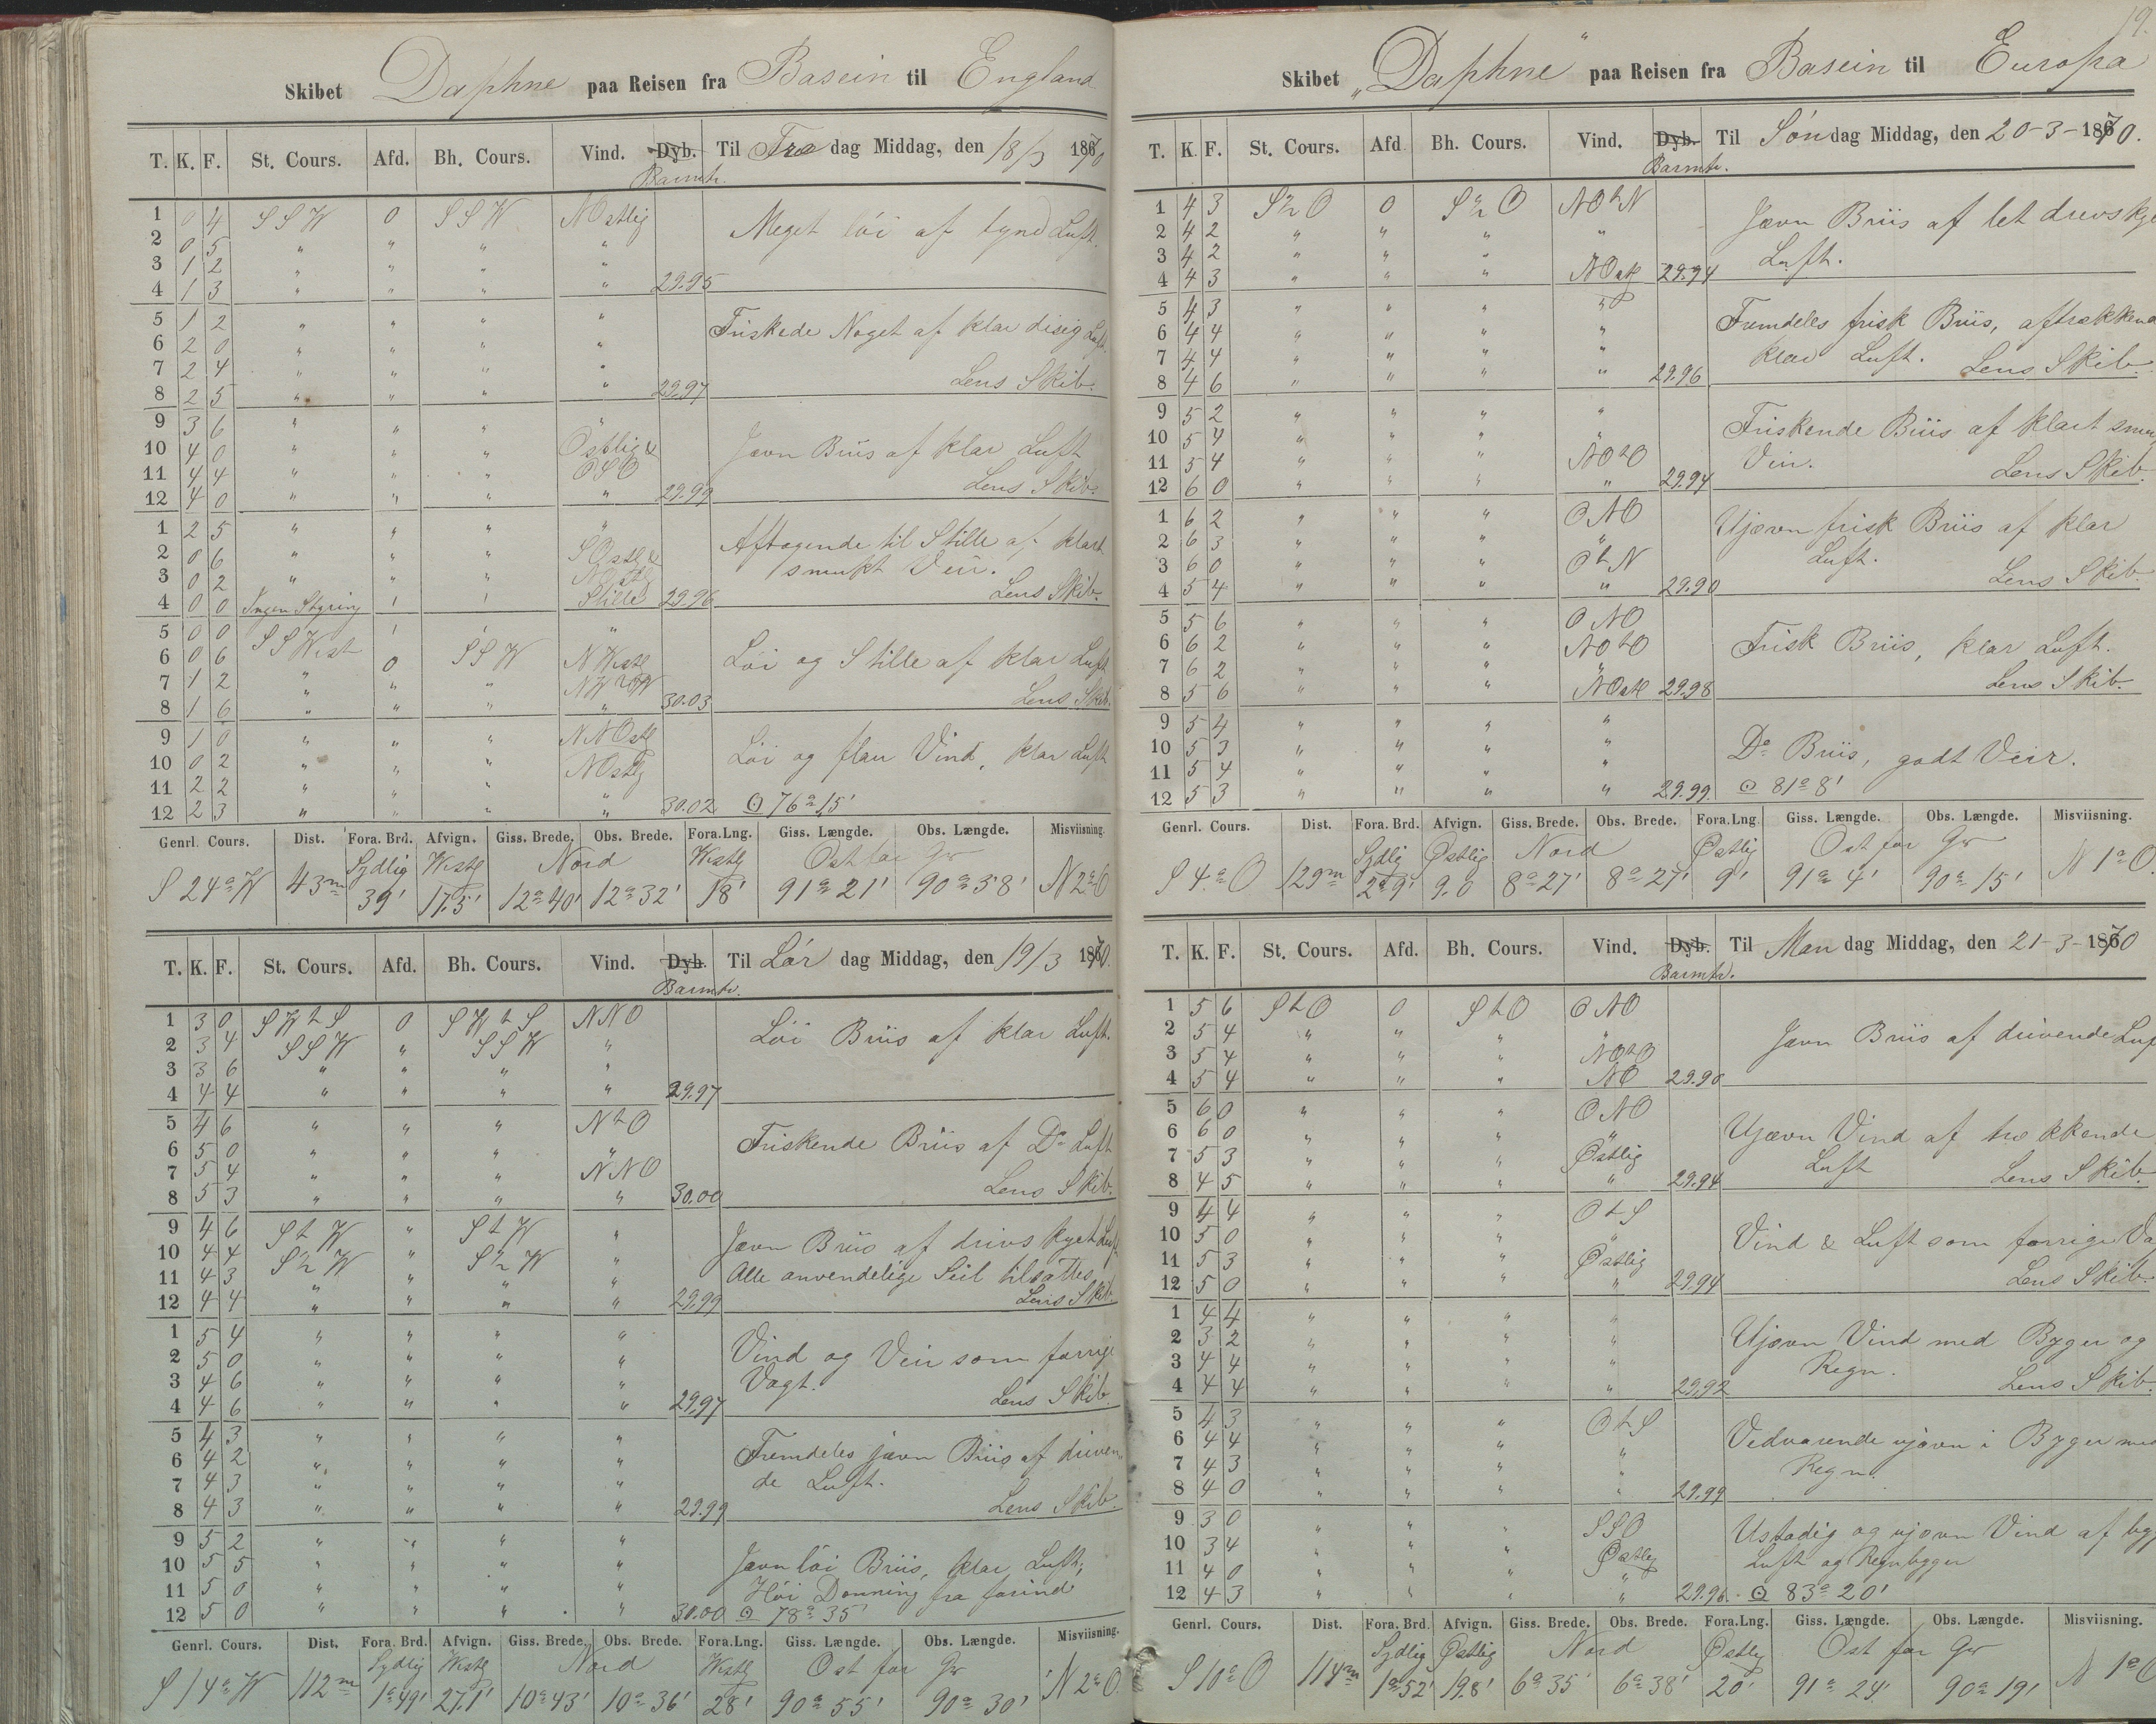 Skibet Daphne paa Reisen fra Basein til England
T. K. F. St. Cours. Afd. Bh. Cours. Vind. Dyb. Barmtr. Til Fredag Middag, den 18/3 1870
1 0 4 SSW 0 SSW NOstlig Meget løi af tynd Luft.
2 0 5 " " " "
3 1 2 " " " "
4 1 3 " " " " 29.95
5 1 2 " " " " Friskede Noget af klar disig Luft.
6 2 0 " " " "
7 2 4 " " " " Lens Skib.
8 2 5 " " " " 29.97
9 3 6 " " " "
10 4 0 " " " Østlig & Jævn Briis af klar Luft
11 4 4 " " " OSO Lens Skib.
12 4 0 " " " " 29.99
1 2 5 " " " " Aftagende til Stille af klart
2 0 6 " " " SOstl & smukt Veir.
3 0 2 " " " NOstlg Lens Skib.
4 0 0 Ingen Styring Stille 29.96
5 0 0 "
6 0 6 SSWest 0 SSW NWestl Løi og Stille af klar Luft
7 1 2 " " " Lens Skib.
8 1 6 " " " " 30.03
9 1 0 " " " NNOstl Løi og flau Vind, klar Luft
10 0 2 " " " NOstlg
11 2 2 " " "
12 2 3 " " " " 30.02 ⊙ 76° 15'
Genrl. Cours. Dist. Fora. Brd. Afvign. Giss. Brede. Obs. Brede. Fora. Lng. Giss. Længde. Obs. Længde. Misviisning.
Sydlig Westl Nord Westl Ost for Gw
S 24° W 43m 39' 17.5' 12° 40' 12° 32' 18' 91° 21' 90° 58' N 2° O
T. K. F. St. Cours. Afd. Bh. Cours. Vind. Dyb. Barmtr. Til Lør dag Middag, den 19/3 1870.
1 3 0 SWtS 0 SWtS NNO Løi Briis af klar Luft.
2 3 4 SSW " SSW "
3 3 6 " " " "
4 4 4 " " " " 29.97
5 4 6 " " " NtO Friskende Briis af Do Luft
6 5 0 " " " "
7 5 4 " " " NNO Lens Skib.
8 5 3 " " " " 30.00
9 4 6 StW " StW " Jævn Briis af drivs kyet Luft
10 4 4 S½W " S½W " Alle anvendelige Seil tilsattes
11 4 3 " " " " Lens Skib.
12 4 4 " " " " 29.99
1 5 4 " " " " Vind og Veir som forrige
2 5 0 " " " " Vagt.
3 4 6 " " " " Lens Skib.
4 4 6 " " " " 29.97
5 4 3 " " " " Fremdeles jævn Briis af driven
6 4 2 " " " " de Luft.
7 4 3 " " " " Lens Skib.
8 4 3 " " " " 29.99
9 5 2 " " " "
10 5 5 " " " " Jævn løi Briis, klar Luft,
11 5 0 " " " " Høi Dønning fra forind
12 5 0 " " " " 30.00 ⊙ 78° 35'
Genrl. Cours. Dist. Fora. Brd. Afvign. Giss. Brede. Obs. Brede. Fora. Lng. Giss. Længde. Obs. Længde. Misviisning.
Sydlig Westl Nord Westl Ost for Gw
S 14° W 112m 1° 49' 27.1' 10° 43' 10° 36' 28' 90° 55' 90° 30' N 2° O.
19.
Skibet „Daphne" paa Reisen fra Basein til Europa
T. K. F. St. Cours. Afd. Bh. Cours. Vind. Dyb. Barmtr. Til Søndag Middag, den 20-3-1870.
1 4 3 S½O 0 S½O NOtN Jævn Briis af let drevskye
2 4 2 " " " " Luft.
3 4 2 " " "
4 4 3 " " " NOstl 29.94
5 4 3 " " " " Fremdeles frisk Briis, aftrækkend
6 4 4 " " " " klar Luft.
7 4 4 " " " " Lens Skib.
8 4 6 " " " " 29.96
9 5 2 " " " " Friskende Briis af klart smu
10 5 4 " " " " Veir.
11 5 4 " " " NOtO Lens Skib.
12 6 0 " " " " 29.94
1 6 2 " " " ONO Ujævn frisk Briis af klar
2 6 3 " " " " Luft.
3 6 0 " " " OtN Lens Skib.
4 5 4 " " " " 29.90
5 5 6 " " " ONO
6 6 2 " " " NOtO Frisk Briis, klar Luft.
7 6 2 " " " " Lens Skib.
8 5 6 " " " NOstl 29.98
9 5 4 " " " "
10 5 3 " " " " Do Briis, godt Veir.
11 5 4 " " " "
12 5 3 " " " " 29.99. ⊙ 81° 8'
Genrl. Cours. Dist. Fora. Brd. Afvign. Giss. Brede. Obs. Brede. Fora. Lng. Giss. Længde. Obs. Længde. Misviisning.
Sydlig Østlig Nord Østlig Ost for Gw
S 4° O 129m 2° 9' 9.0 8° 27' 8° 27' 9' 91° 4' 90° 15' N 1° O.
T. K. F. St. Cours. Afd. Bh. Cours. Vind. Dyb. Barmtr. Til Man dag Middag, den 21-3-1870
1 5 6 StO 0 StO ONO
2 5 4 " " " " Jævn Briis af drivende Luf
3 5 4 " " " NOtO
4 5 4 " " " NO 29.90
5 6 0 " " " ONO
6 6 0 " " " " Ujævn Vind af trækkende
7 5 3 " " " Østlig Luft
8 4 5 " " " " 29.94 Lens Skib.
9 4 4 " " " OtS
10 5 0 " " " " Vind & Luft som forrige Va
11 5 3 " " " Østlig Lens Skib.
12 5 0 " " " " 29.94
1 4 4 " " " "
2 3 2 " " " " Ujævn Vind med Byger og
3 4 4 " " " " Regn.
4 4 4 " " " " 29.92 Lens Skib.
5 4 3 " " " OtS
6 4 4 " " " " Vedvarende ujævn i Byger med
7 4 3 " " " " Regn.
8 4 0 " " " " 29.99
9 3 0 " " " SSO Ustadig og ujævn Vind af byg
10 3 4 " " " Østlig Luft og Regnbyger
11 4 0 " " " "
12 4 3 " " " " 29.96. ⊙ 83° 20'
Genrl. Cours. Dist. Fora. Brd. Afvign. Giss. Brede. Obs. Brede. Fora. Lng. Giss. Længde. Obs. Længde. Misviisning.
Sydlig Østlig Nord Østlig Ost for Gw
S 10° O 114m 1° 52' 19.8' 6° 35' 6° 38' 20' 91° 24' 90° 19' N 1° O